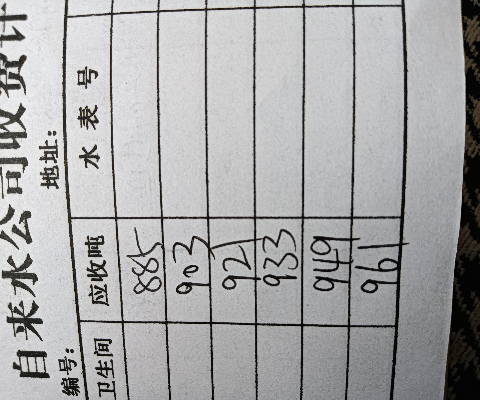 自来水公司收费计
编号: 地址:
卫生间 应收吨 水表号
885
903
921
933
949
961